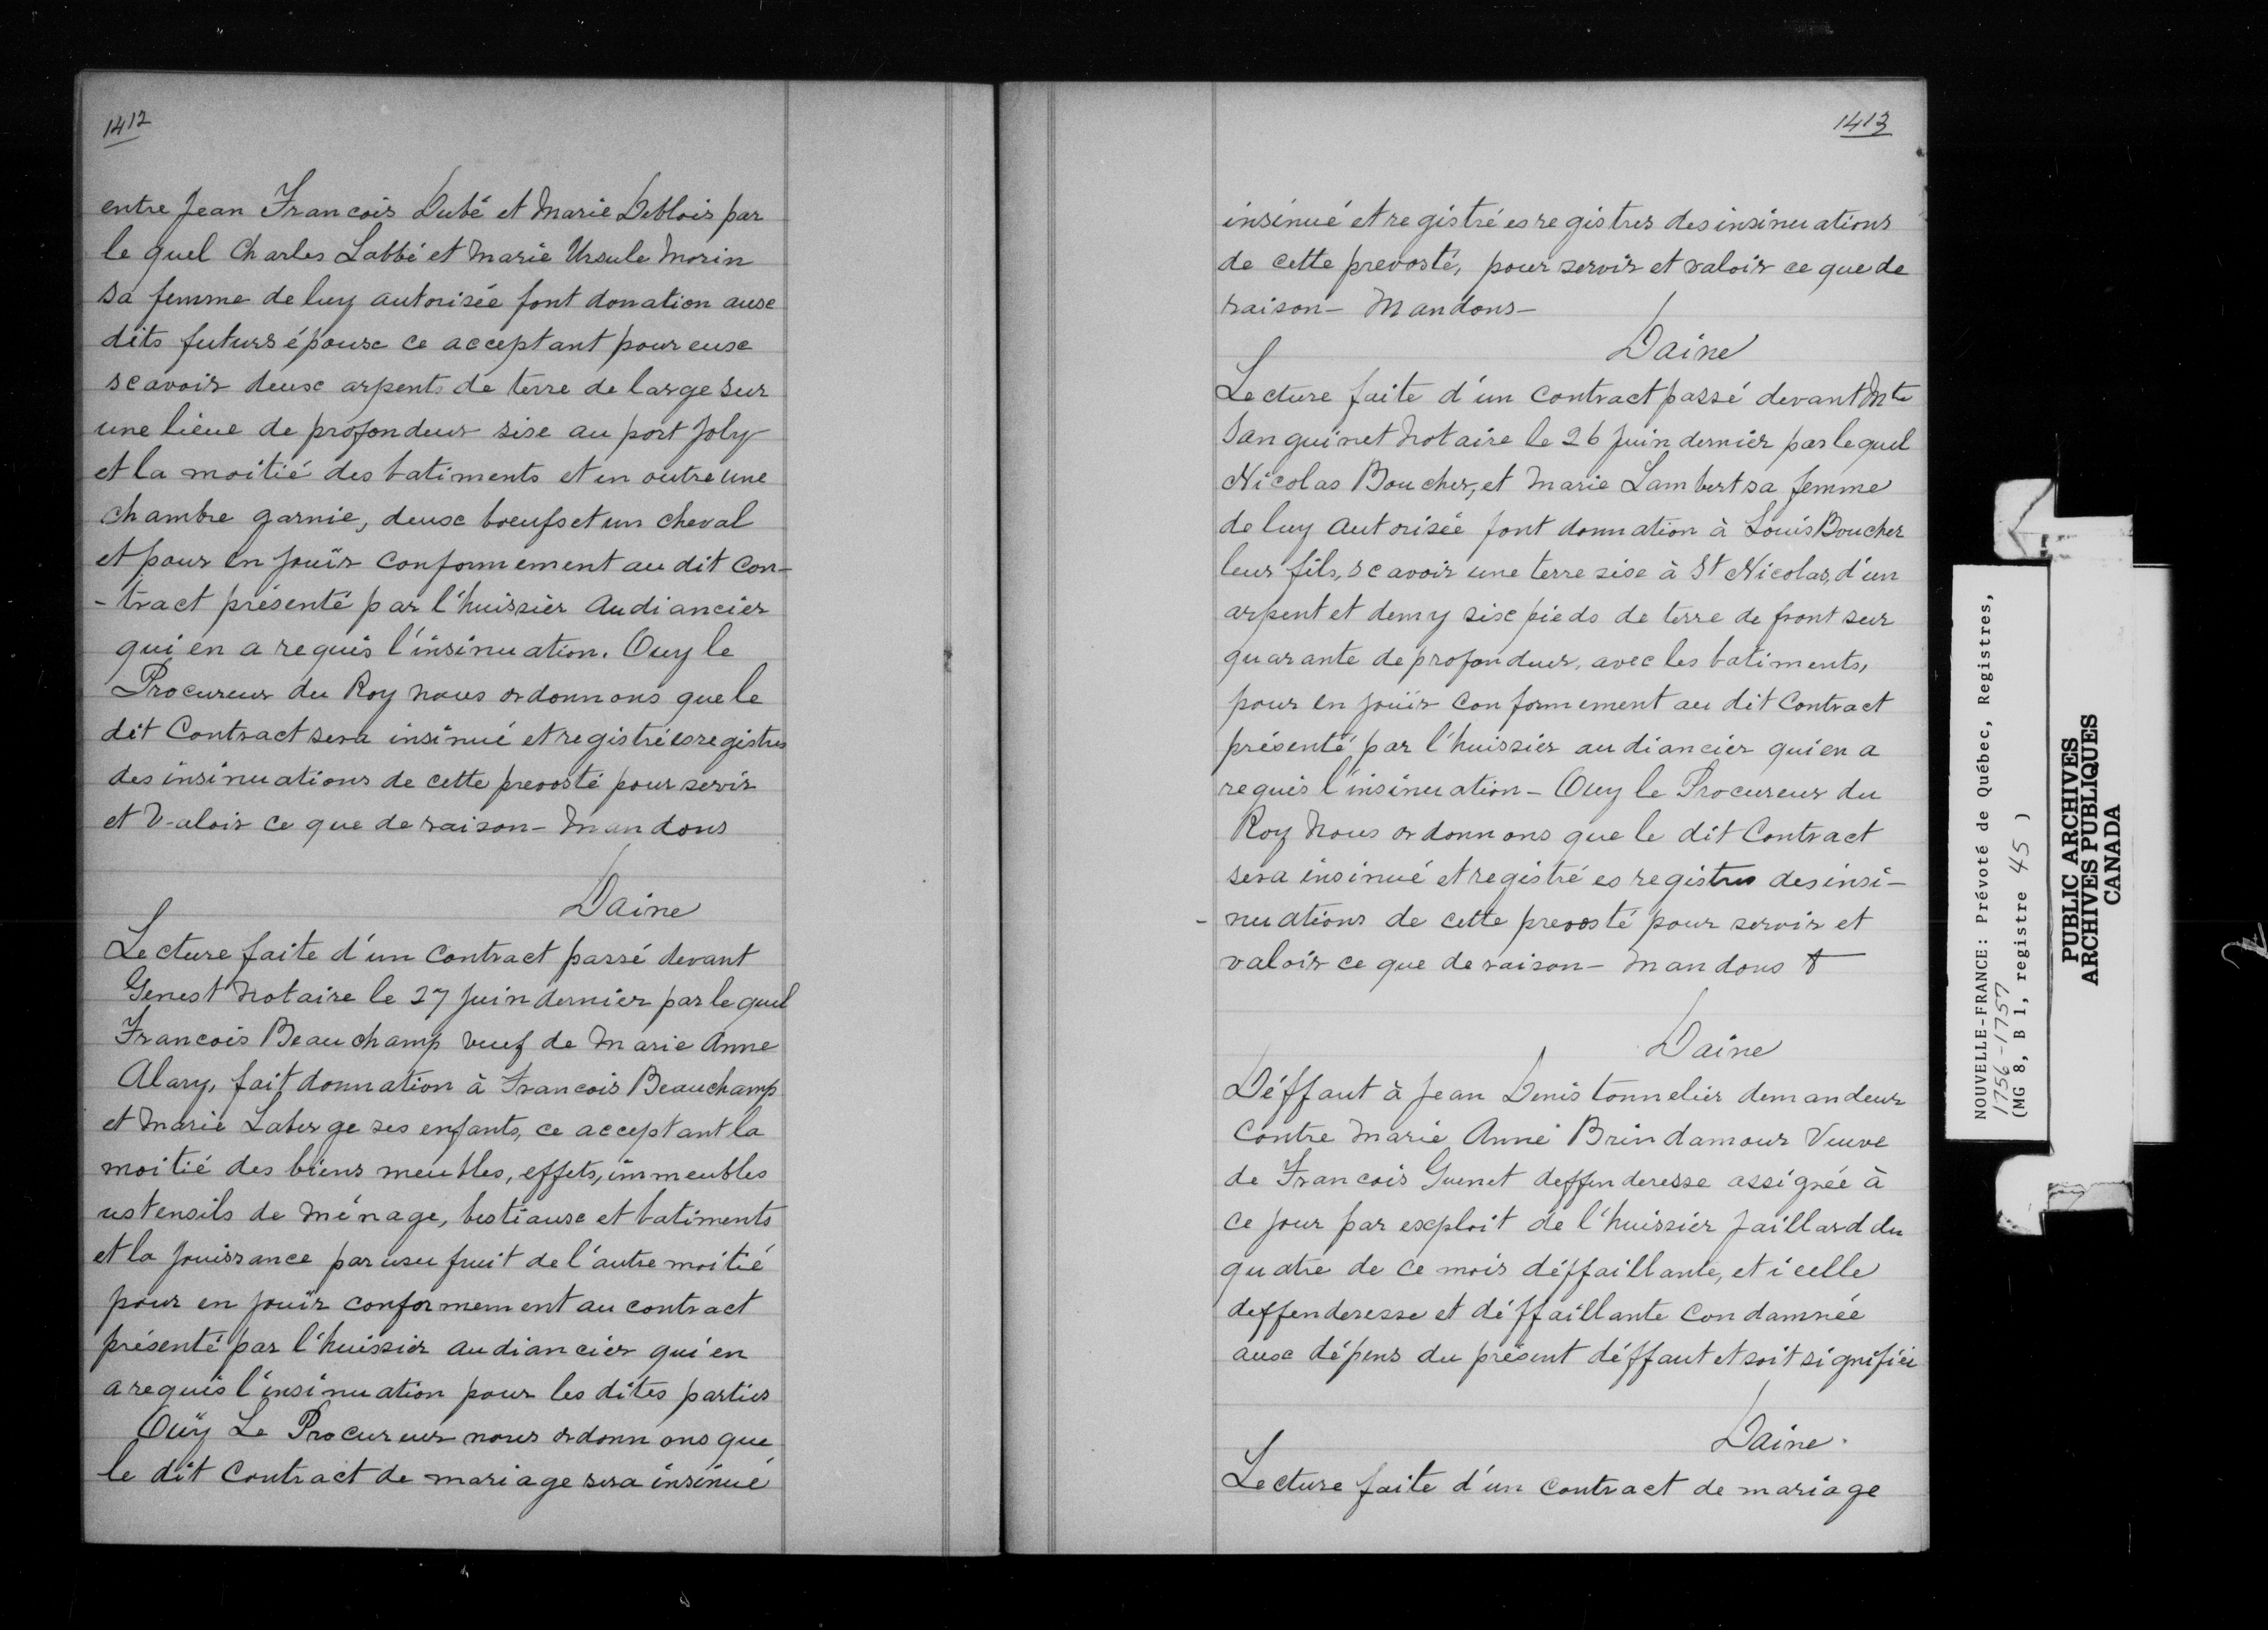 1412
entre Jean Francois Dubé et Marie Deblois par
le quel Charles Labbé et Marie Ursule Morin
sa femme de luy autorisée font donation aux
dits futurs époux ce acceptant pour eux
scavoir deux arpents de terre de large sur
une lieue de profondeur sise au port Joly
et la moitié des batiments et en outre une
chambre garnie, deux boeufs et un cheval
et pour en jouïr conformement au dit con-
-tract présenté par l'huissier audiancier
qui en a requis l'insinuation. Ouy le
Procureur du Roy nous ordonnons que le
dit Contract sera insinué et registré es registres
des insinuations de cette prevosté pour servir
et Valoir ce que de raison - Mandons
Daine
Lecture faite d'un contract passé devant
Genest Notaire le 27 Juin dernier par le quel
Francois Beauchamp veuf de Marie Anne
Alary, fait donnation à Francois Beauchamp
et Marie Laberge ses enfants, ce acceptant la
moitié des biens meubles, effets, immeubles
ustensils de ménage, bestiaux et batiments
et la jouissance par usufruit de l'autre moitié
pour en jouïr conformement au contract
présenté par l'huissier audiancier qui en
a requis l'insinuation pour les dites parties
Ouÿ Le Procureur nous ordonnons que
le dit Contract de mariage sera insinué
1413
insinué et registré es registres des insinuations
de cette prevosté, pour servir et valoir ce que de
raison - Mandons -
Daine
Lecture faite d'un contract passé devant Mte
Sanguinet Notaire le 26 Juin dernier par le quel
Nicolas Boucher, et Marie Lambert sa femme
de luy autorisée font donnation à Louis Boucher
leur fils, scavoir une terre sise à St Nicolas, d'un
arpent et demy six pieds de terre de front sur
quarante de profondeur, avec les batiments,
pour en jouïr conformement au dit Contract
présenté par l'huissier audiancier qui en a
requis l'insinuation - Ouy le Procureur du
Roy Nous ordonnons que le dit Contract
sera insinué et registré es registres des insi-
- nuations de cette prevosté pour servir et
valoir ce que de raison - Mandons
Daine
Déffaut à Jean Denis tonnelier demandeur
contre Marie Anne Brindamour Veuve
de Francois Guenet deffenderesse assignée à
ce jour par exploit de l'huissier Jaillard du
quatre de ce mois déffaillante, et icelle
deffenderesse et déffaillante condamnée
aux dépens du présent déffaut et soit signifiée
Daine.
Lecture faite d'un contract de mariage
NOUVELLE-FRANCE: Prévoté de Québec, Registres,
1756-1757
(MG 8, B 1, registre 45 )
PUBLIC ARCHIVES
ARCHIVES PUBLIQUES
CANADA